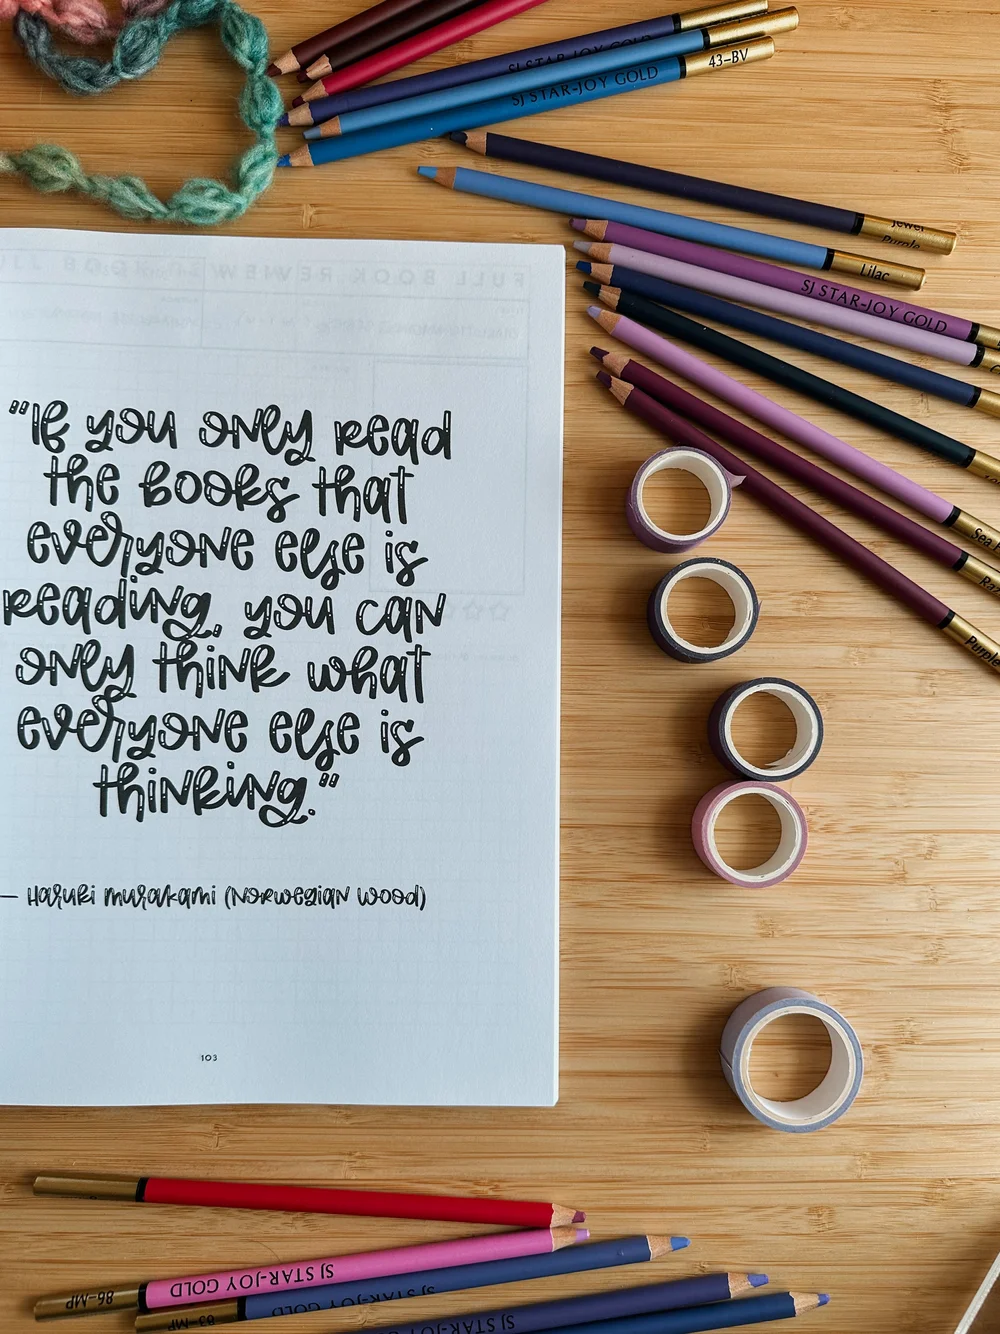 SJ STAR-JOY GOLD
SJ STAR-JOY GOLD
43-BV
Jewel
Purple
Lilac
SJ STAR-JOY GOLD
FULL BOOK REVIEW
"If you only read
the books that
everyone else is
reading, you can
only think what
everyone else is
thinking."
— Haruki Murakami (Norwegian Wood)
103
Sea
Purple
86-MP
SJ STAR-JOY GOLD
83-MP
SJ STAR-JOY GOLD
SJ STAR-JOY GOLD